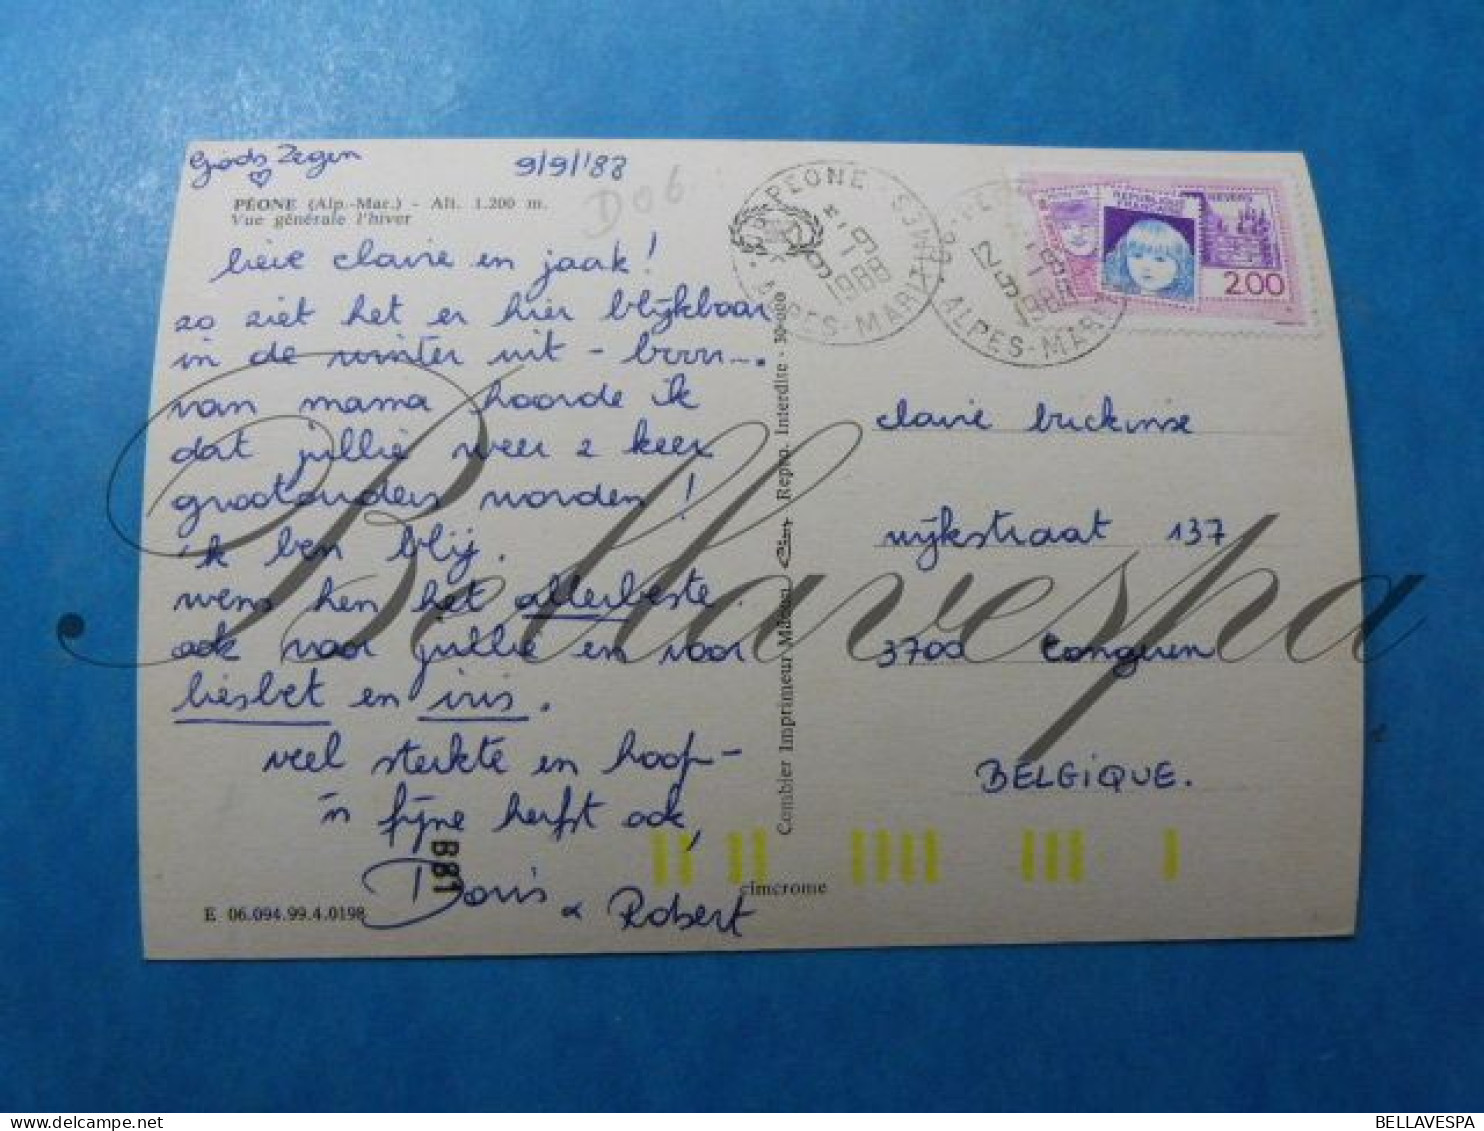 Gods Zegen
9/9/'88
D06
PÉONE (Alp.-Mar.) - Alt. 1.200 m.
Vue générale l'hiver
lieve claire en jaak!
zo ziet het er hier blijkbaar
in de winter uit - brrr....
van mama hoorde ik
dat jullie weer 2 keer
grootouders worden!
'k ben blij.
wens hen het allerbeste.
ook voor jullie en voor
liesbet en iris.
veel sterkte en hoop -
'n fijne herfst ook,
Doris & Robert
B81
E 06.094.99.4.0198
cimcrome
Combier Imprimeur Mâcon Cim Repro. Interdite - 30-020
PEONE
9-9
1988
ALPES-MARITIMES
12 H
9-9
1988
ALPES-MAR
RÉPUBLIQUE
NEVERS
2.00
claire brickinse
nijkstraat 137
3700 Tongeren
BELGIQUE.
Bellavespa
BELLAVESPA